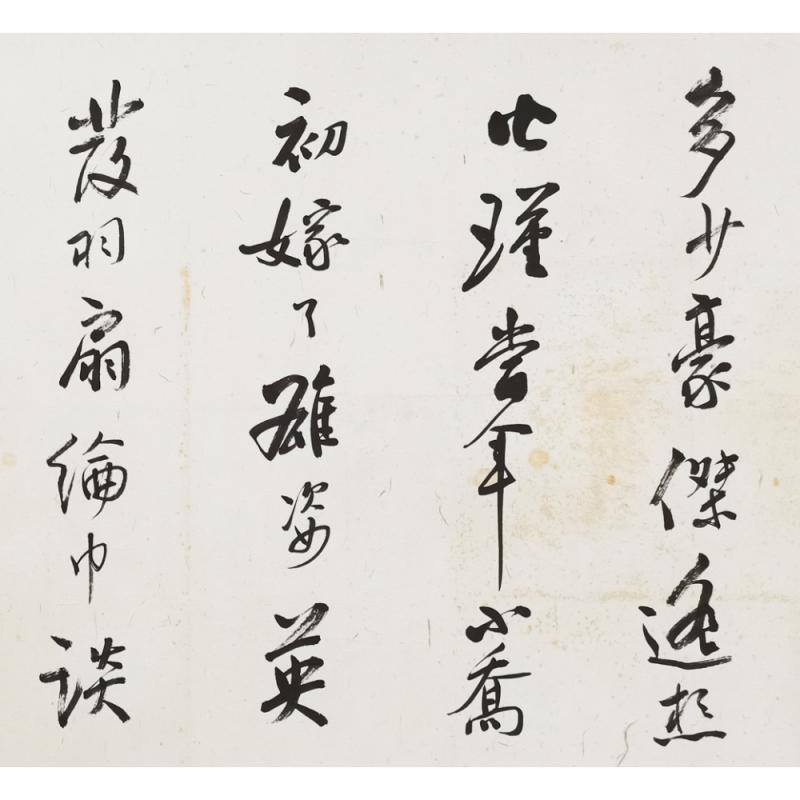 多少豪傑遙想
公瑾當年小喬
初嫁了雄姿英
發羽扇綸巾談